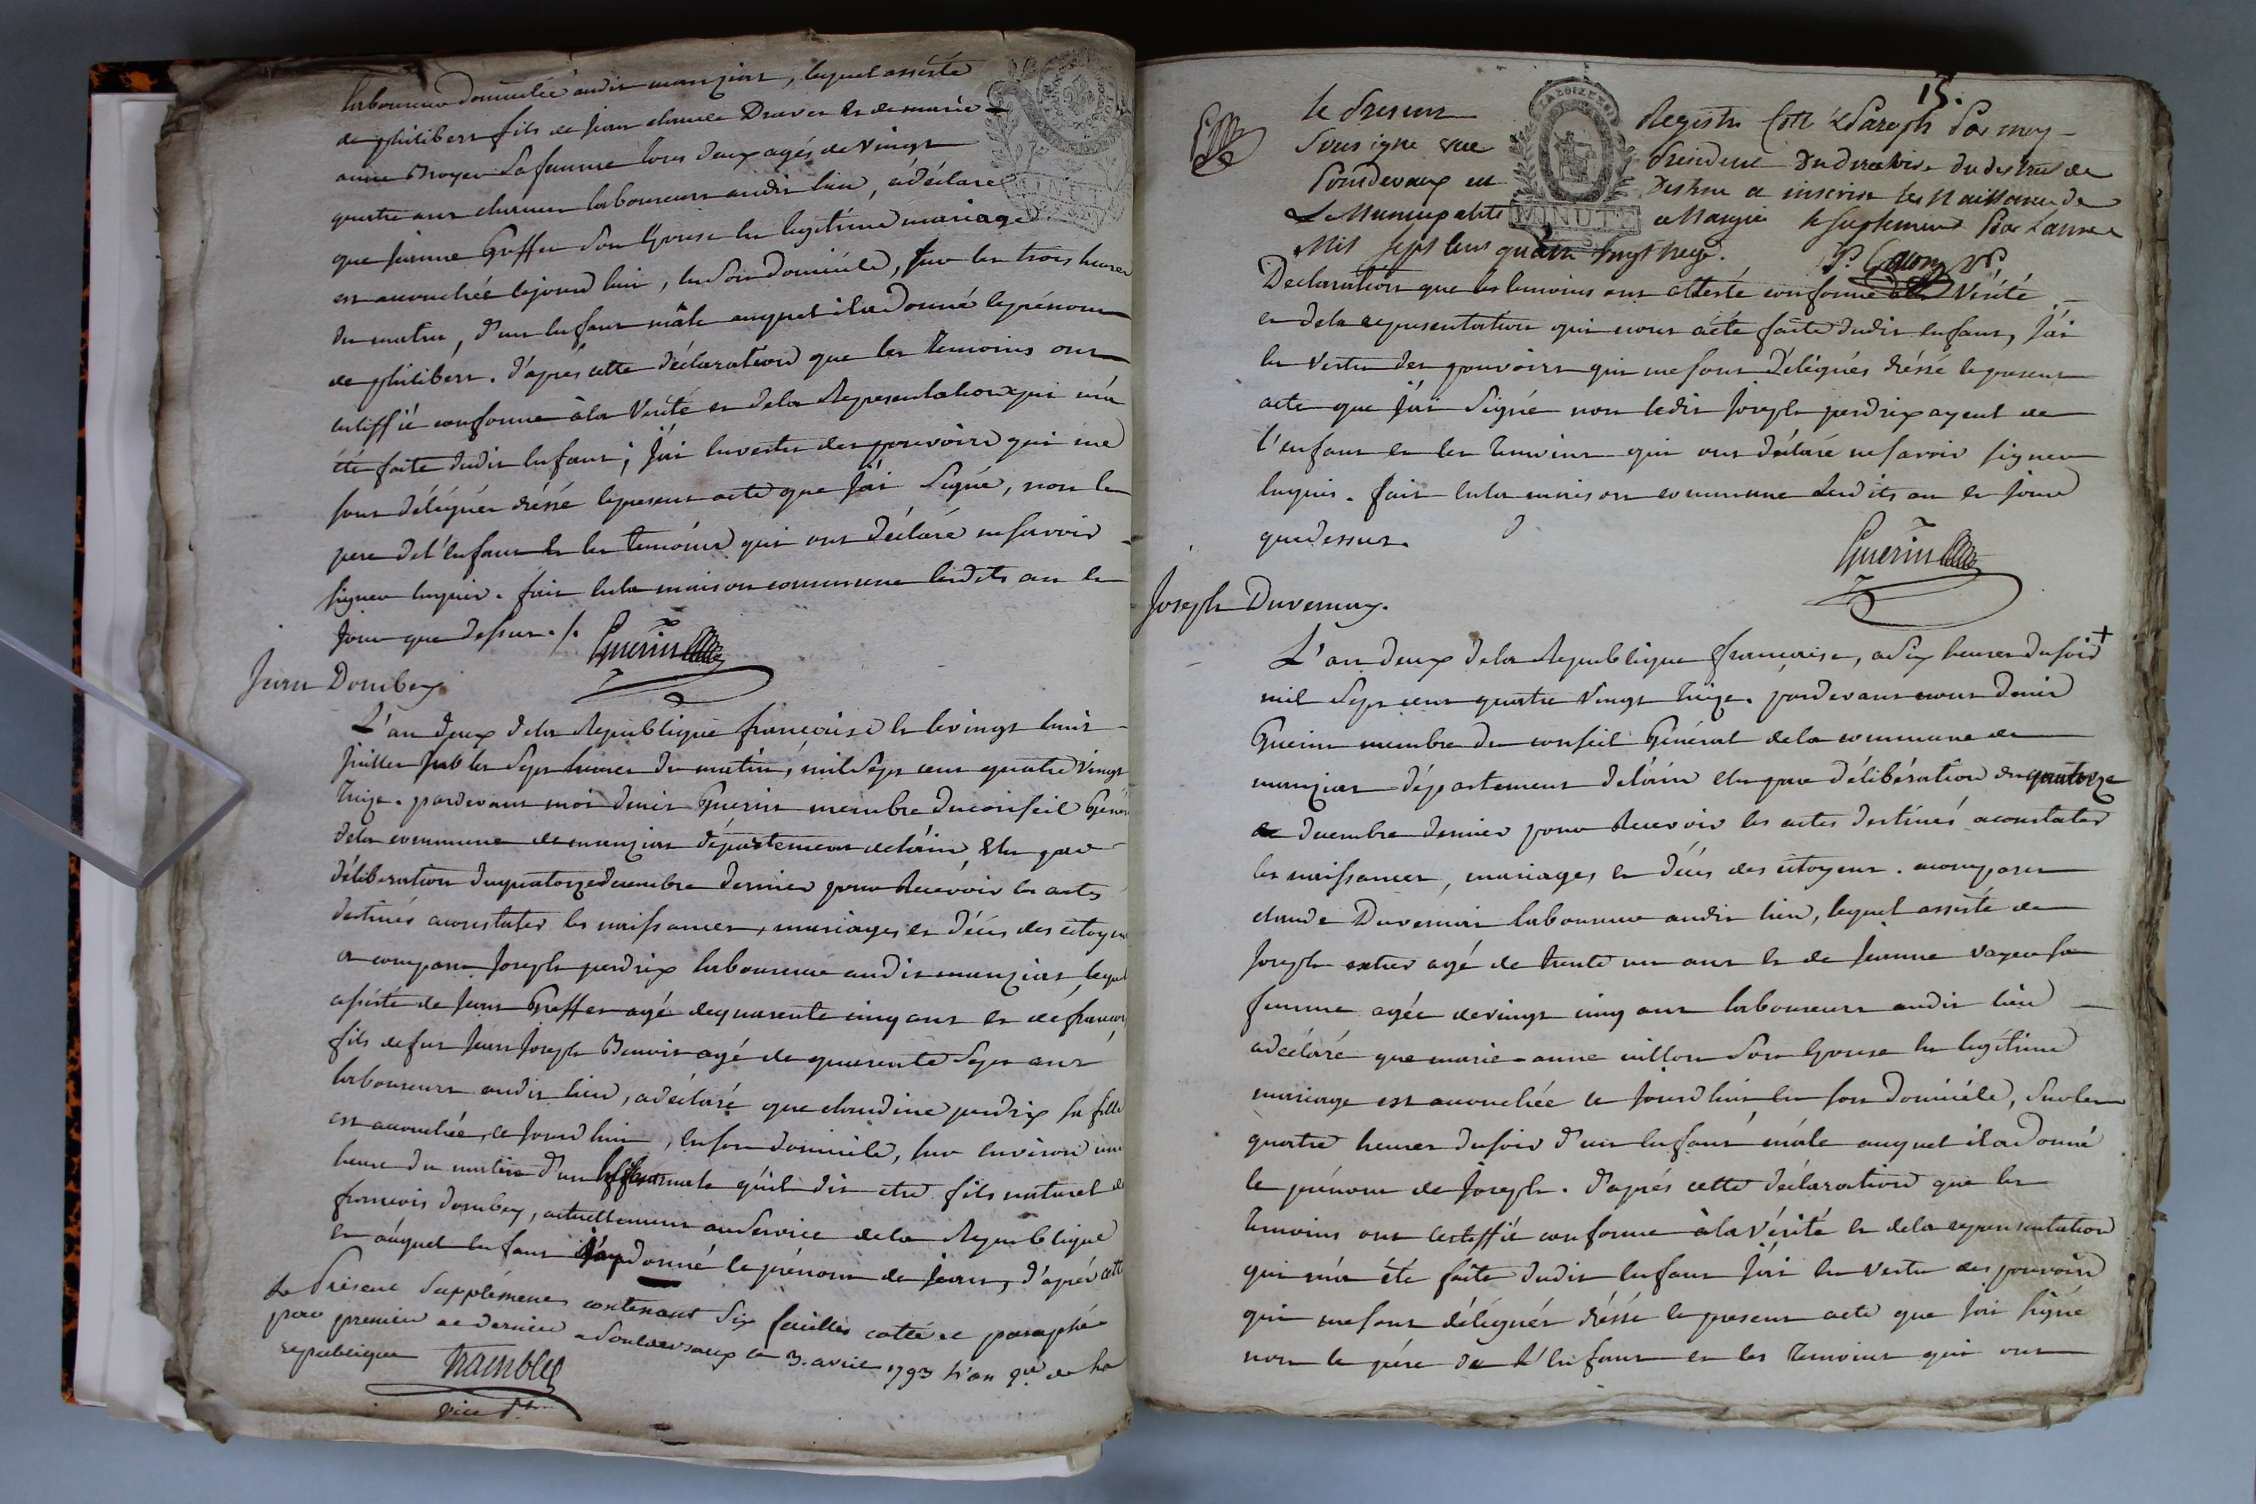 laboureur domicilié audit manziat, lequel assisté
de philibert fils de jean claude Drever et de marie
anne Broyer sa femme tous deux agés de vingt
quatre ans chacun laboureurs audit lieu, a déclaré
que jeanne Greffet son Epouse en legitime mariage
est accouchée cejourd'hui, en son domicile, sur les trois heures
du matin, d'un enfant mâle auquel il a donné le prénom
de philibert. d'après cette déclaration que les temoins ont
certiffié conforme à la Verité et de la Representation qui m'a
été faite dudit enfant; j'ai en vertu des pouvoirs qui me
sont délégués dréssé le present acte que j'ai signé, non le
pere de l'enfant et les temoins qui ont déclaré ne savoir
signer enquis. fait en la maison commune lesdits an et
jour que dessus ./. Guerin
Jean Dombey
L'an deux de la République françoise et le vingt huit
juillet sur les sept heures du matin, mil sept cent quatre vingt
treize. pardevant moi denis Guerin membre du conseil Géneral
de la commune de manziat département de l'ain Elu par
déliberation du quatorze decembre dernier pour Recevoir les actes
destinés a constater les naissances, mariages et décés des citoyens
a comparu Joseph perdrix laboureur audit manziat, lequel
assisté de Jean Greffet agé de quarente cinq ans et de francois
fils de feu Jean Joseph Benoit agé de quarente sept ans
laboureurs audit lieu, a déclaré que claudine perdrix sa fille
est accouchée, ce jourd'hui, en son domicile, sur environ une
heure du matin d'un enfant male qu'il dit etre fils naturel de
francois dombey, actuellement au service de la République
et auquel enfant j'ay donné le prénom de jean, d'après cette
Le Présent Supplément contenant Six feuilles cotté et paraphé
par premier et dernier a Pontdevaux le 3. avril 1793 l'an 2me de la
republique Tramblay
vice Pdt
15.
le Present
Sous signé vue
Pontdevaux en
La Municipalité
Registre Cotté & Paraph Par moy
Président du directoire du destrict de
destiné a inscrire les Naissances de
a Manziat le suplement Pour L'année
MINUTE
Mil sept cens quatre vingt treize.
Declaration que les temoins ont attesté conforme à la Vérité
et de la representation qui nous a été faite dudit enfant, j'ai
en vertu des pouvoirs qui me sont délégués dréssé le present
acte que j'ai signé non ledit Joseph perdrix ayeul de
l'enfant et les temoins qui ont déclaré ne savoir signer
enquis. fait en la maison commune lesdits an et jour
que dessus.
Guerin
Joseph Duvernay.
L'an deux de la Republique francaise, a six heures du soir +
mil sept cent quatre vingt treize. pardevant nous denis
Guerin membre du conseil Général de la commune de
manziat département de l'ain Elu par délibération du quatorze
decembre dernier pour Recevoir les actes destinés a constater
les naissances, mariages et décés des citoyens. a comparu
claude Duvernai laboureur audit lieu, lequel assisté de
Joseph agé de trente un ans et de jeanne sa
femme agée de vingt cinq ans laboureurs audit lieu
a déclaré que marie-anne son Epouse en legitime
mariage est accouchée ce jourd'hui en son domicile, sur les
quatre heures du soir d'un enfant mâle auquel il a donné
le prénom de Joseph. d'après cette déclaration que les
temoins ont certiffié conforme à la vérité et de la representation
qui m'a été faite dudit enfant j'ai en vertu des pouvoirs
qui me sont délégués dréssé le present acte que j'ai signé
non le pére de l'enfant et les temoins qui ont